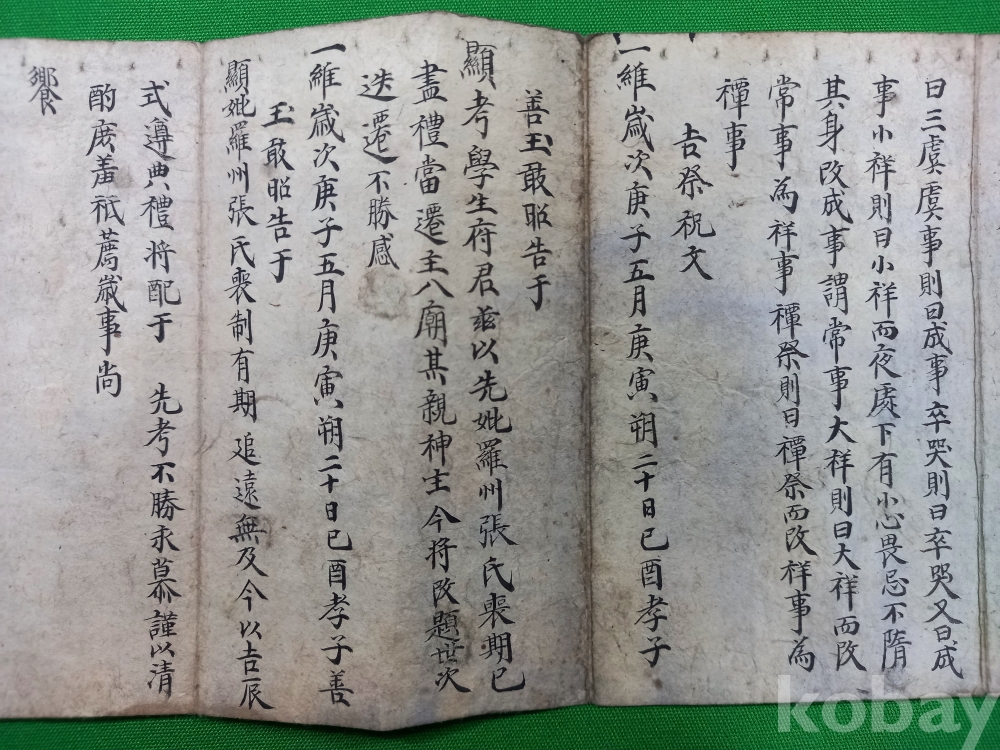 曰三虞虞事則曰成事卒哭則曰卒哭又曰成
事小祥則曰小祥而夜處下有小心畏忌不隋
其身改成事謂常事大祥則曰大祥而改
常事為祥事禫祭則曰禫祭而改祥事為
禫事
吉祭祝文
一維歲次庚子五月庚寅朔二十日已酉孝子
善玉敢昭告于
顯考學生府君玆以先妣羅州張氏喪期已
盡禮當遷主入廟其親神主今将改題世次
迭遷不勝感
一維歲次庚子五月庚寅朔二十日已酉孝子善
玉敢昭告于
顯妣羅州張氏喪制有期追遠無及今以吉辰
式遵典禮将配于 先考不勝永慕謹以清
酌庶羞祗薦歲事尚
饗
kobay